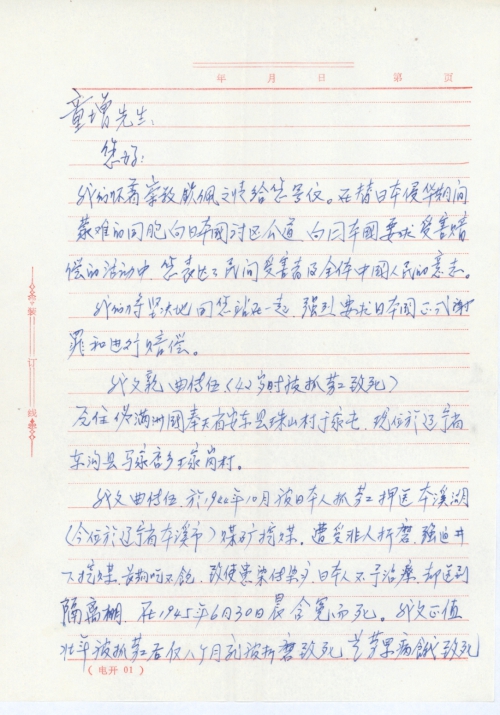 年 月 日 第 页
童增先生:
您好:
我们怀着崇敬钦佩之情给您写信。在替日本侵华期间
蒙难的同胞向日本國讨回公道,向日本國要求受害赔
偿的活动中,您表达了民间受害者及全体中國人民的意志。
我们将坚决地同您站在一起,强烈要求日本国正式谢
罪和进行赔偿。
我父亲曲传伍(42岁时被抓劳工致死)
原住伪满洲国奉天省安东县珠山村于家屯,现位於辽宁省
东沟县马家店乡于家岗村。
我父曲传伍,於1944年10月被日本人抓劳工押送本溪湖
(今位於辽宁省本溪市)煤矿挖煤。遭受非人折磨,强迫井
下挖煤,
吃不饱,致使患染付染,日本人不予治療,却送到
隔离棚,在1945年6月30日晨含冤而死。我父正值
壮年被抓劳工后仅八个月到被折磨致死,
病餓致死
装 订 线
(电开 01)